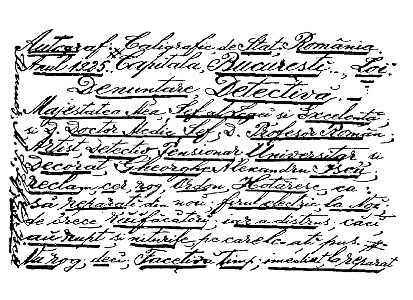 Autograf: Caligrafic de Stat: România.
Anul 1925. Capitala, Bucuresti.., Loi.
Denuntare, Detectivă.
Majestatea Mea, Sef al Legii si Excelentă,
si D. Doctor Medic Sef, D. Profesor Român,
Artist Detectiv Pensionar Universitar si
Decorat Gheorghe Alexandru
reclam, cer, rog, Ordon, Hotărere, ca:
să reparati din nou: firul electric, la Noi,
de örece răufăcători, iar a distrus, căci
au rupt si niturile, pe care le ati pus.
Vă rog, deci, Faceti în timp; imediat, le reparat